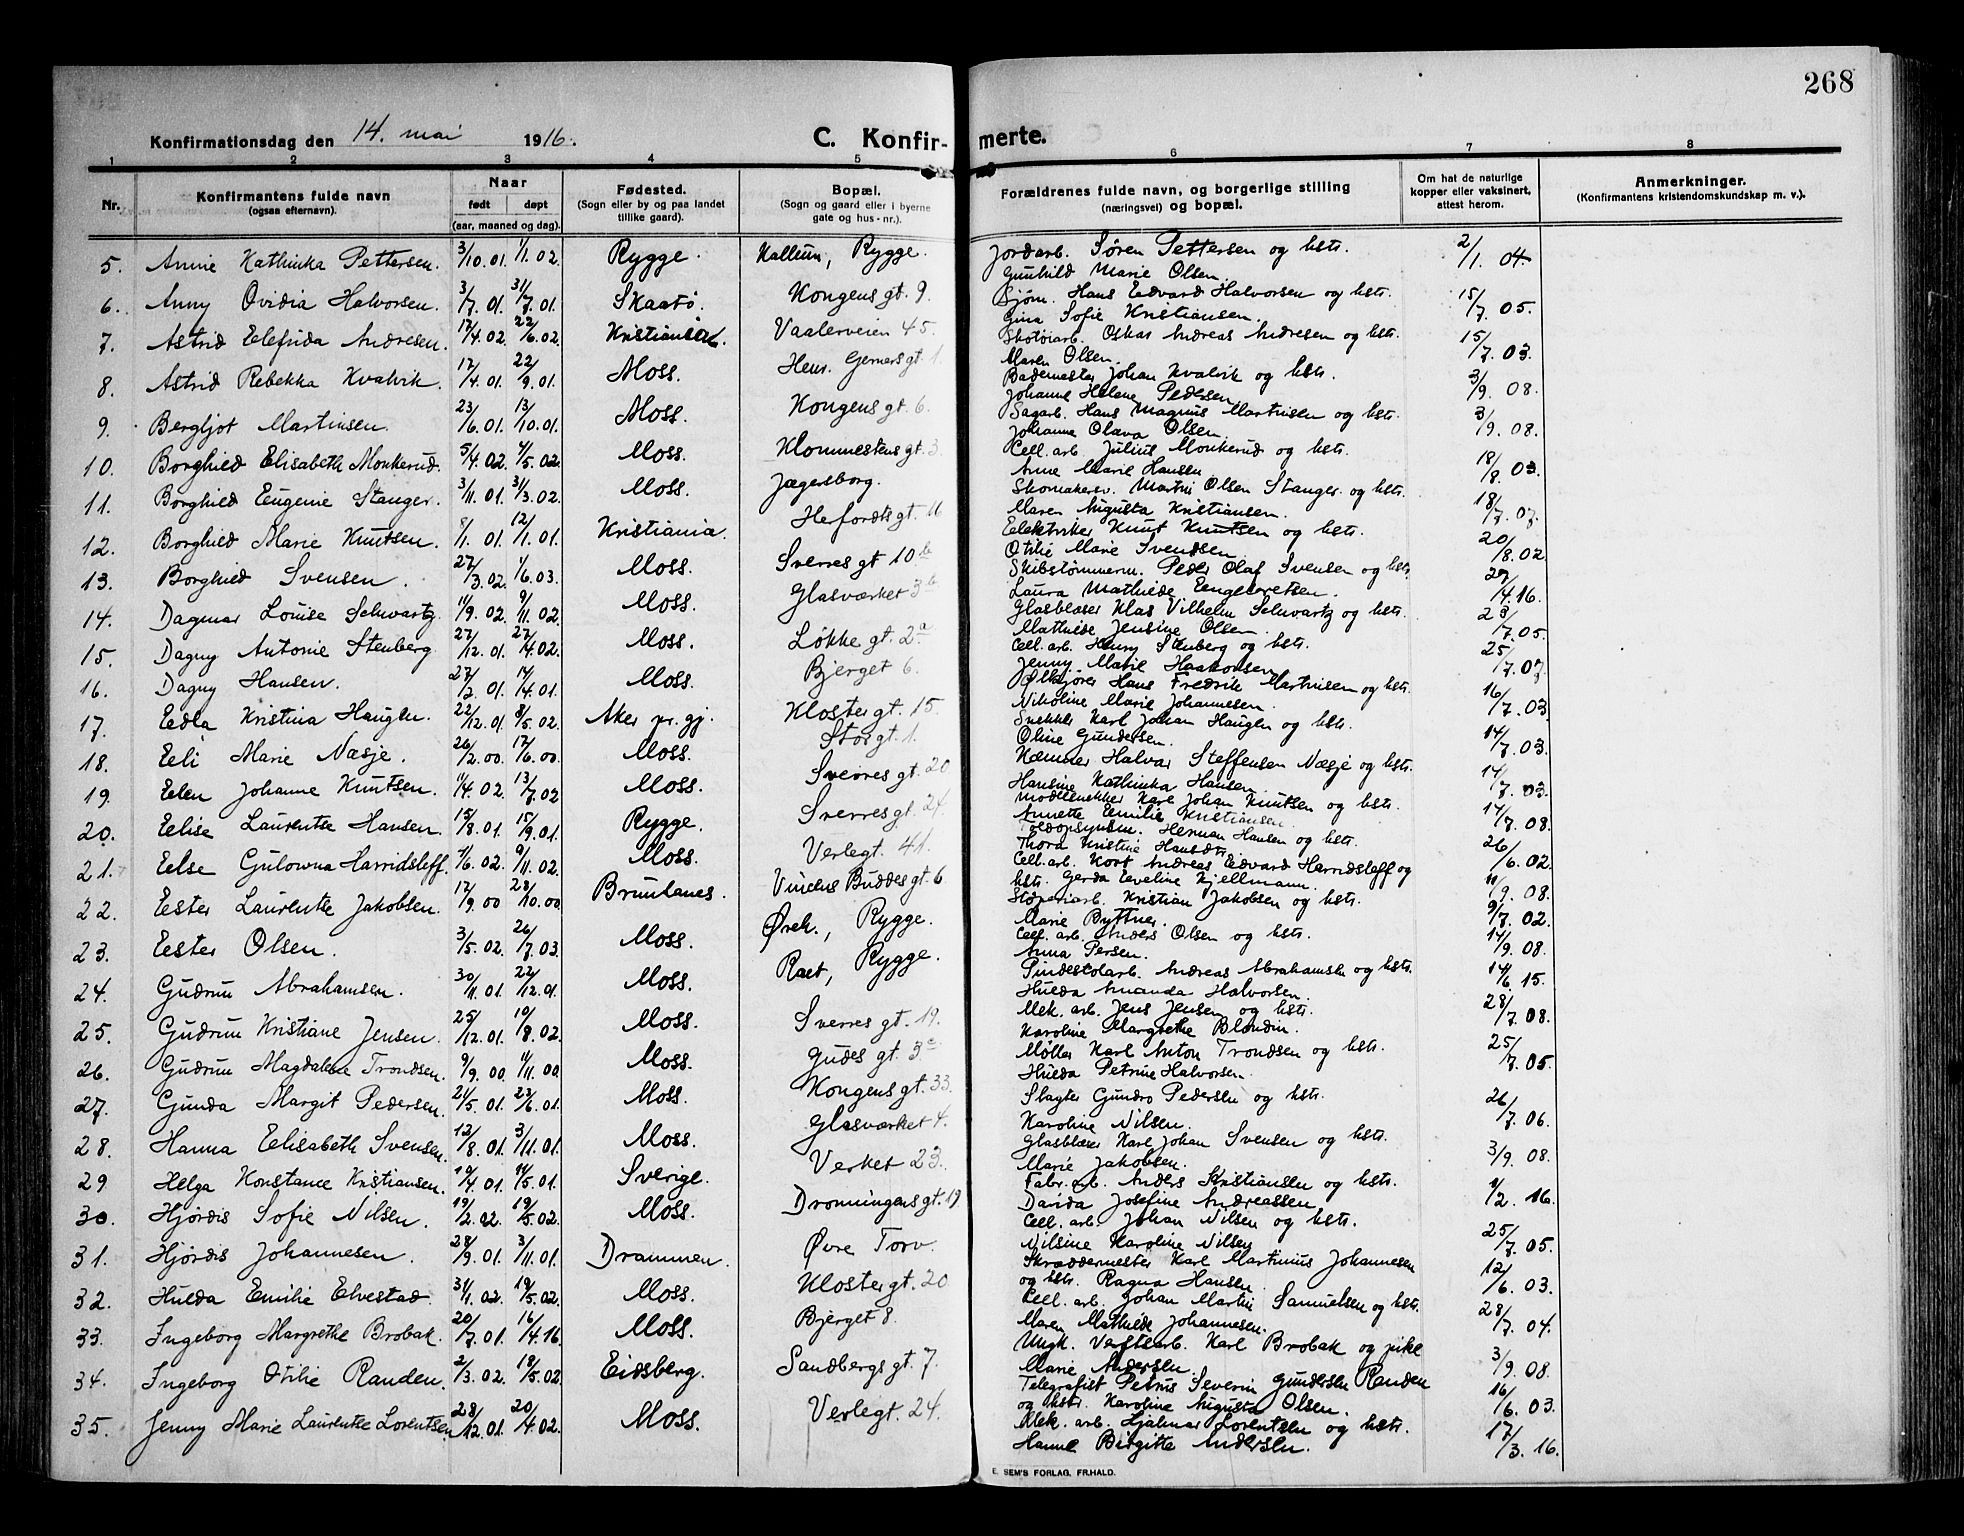 268
Konfirmationsdag den 14. mai 1916. C. Konfir- merte.
1 2 3 4 5 6 7 8
Nr. Konfirmantens fulde navn (ogsaa efternavn). Naar født døpt (aar, maaned og dag). Fødested. (Sogn eller by og paa landet tillike gaard). Bopæl. (Sogn og gaard eller i byerne gate og hus-nr.). Forældrenes fulde navn, og borgerlige stilling (næringsvei) og bopæl. Om hat de naturlige kopper eller vaksinert, attest herom. Anmerkninger. (Konfirmantens kristendomskundskap m. v.).
5. Annie Kathinka Pettersen. 3/10.01. 1/1.02. Rygge. Kallum, Rygge. Jordarb. Søren Pettersen og hstr. 2/1.04.
Gunhild Marie Olsen.
6. Anny Ovidia Halvorsen. 3/7.01. 31/7.01. Skaatø. Kongens gt. 9. Sjøm. Hans Edvard Halvorsen og hstr. 15/7.05.
Gina Sofie Kristiansen.
7. Astrid Elefrida Andresen. 17/4.02. 22/6.02. Vaalerveien 45. Skotøiarb. Oskar Andreas Andresen og hstr. 15/7.03.
Maren Olsen.
8. Astrid Rebekka Kvalvik. 17/4.01. 22/9.01. Moss. Henr. Gerners gt. 1. Bademester Johan Kvalvik og hstr. 3/9.08.
Johanne Helene Pedersen.
9. Bergljot Martinsen. 23/6.01. 13/10.01. Moss. Kongens gt. 6. Sagarb. Hans Magnus Martinsen og hstr. 3/9.08.
Johanne Olava Olsen.
10. Borghild Elisabeth Monkerud. 5/4.02. 4/5.02. Moss. gt. 3. Cell. arb. Julius Monkerud og hstr. 18/8.03.
Anne Marie Hansen.
11. Borghild Eugenie Stanger. 3/11.01. 31/3.02. Moss. Jægersborg. Skomakersv. Martin Olsen Stanger og hstr. 18/7.07.
Maren Augusta Kristiansen.
12. Borghild Marie Knutsen. 8/1.01. 12/1.01. Kristiania. Herfordts gt. 11 Elektriker Knut Knutsen og hstr. 20/8.02
Otilie Marie Svendsen.
13. Borghild Svensen. 27/3.02. 1/6.03. Moss. Sverres gt 10 b Skibstømmerm. Peder Olaf Svensen og hstr. 29/4.16.
Laura Mathilde Engebretsen.
14. Dagmar Louise Schwartz. 11/9.02. 9/11.02. Moss. Glasværket 3 b Glasblæser Klas Vilhelm Schwartz og hstr. 23/7.05.
Mathilde Jensine Olsen.
15. Dagny Antonie Stenberg. 27/12.01. 27/4.02. Moss. Løkke gt. 2 a Cell. arb. Henry Stenberg og hstr. 25/7.07
Jenny Marie Haakonsen.
16. Dagny Hansen. 27/2.01. 14/4.01. Moss. Bjerget 6. Ølkjører Hans Fredrik Martinsen og hstr. 16/7.03
Nikoline Marie Johannesen.
17. Edla Kristina Haugen. 22/12.01. 8/5.02. Aker pr. gj. Kloster gt. 15. Snekker Karl Johan Haugen og hstr. 14/7.03.
Oline Gundersen.
18. Eli Marie Næsje. 26/2.00. 17/6.00. Moss. Stor gt. 1. Kæmner Halvar Steffensen Næsje og hstr. 14/7.03.
Hansine Kathinka Hansen.
19. Elen Johanne Knutsen. 11/4.02. 13/7.02 Moss. Sverres gt. 20 Modellsnekker Karl Johan Knutsen og hstr. 14/7.08.
Annette Emilie Kristiansen
20. Elise Laurentse Hansen. 15/8.01. 15/9.01. Rygge. Sverres gt. 24. Toldopsynsm. Herman Hansen og hstr. 26/6.02
Thora Kristine Hansdtr.
21. Else Gulowna Harridsleff. 7/6.02. 9/11.02. Moss. Verlegt. 41. Cell. arb. Kort Andreas Edvard Harridsleff og 11/9.08.
hstr. Gerda Eveline Kjellmann.
22. Ester Laurentse Jakobsen. 17/9.00 28/10.00. Brunlanes. Vincens Buddes gt. 6 Støperiarb. Kristian Jakobsen og hstr. 9/7.02.
Marie Byttner.
23. Ester Olsen. 3/5.02. 26/7.03. Moss. Ørek., Rygge. Cell. arb. Anders Olsen og hstr. 14/9.08.
Anna Persen.
24. Gudrun Abrahamsen. 30/11.01. 22/12.01. Moss. Raet, Rygge. Pindestolarb. Andreas Abrahamsen og hstr. 14/6.15.
Hulda Amanda Halvorsen.
25. Gudrun Kristiane Jensen. 25/12.01. 10/8.02. Moss. Sverres gt. 19. Mek. arb. Jens Jensen og hstr. 28/7.08.
Karoline Margrethe Blondin.
26. Gudrun Magdalene Trondsen. 9/9.00. 11/11.00. Moss. Gudes gt. 3 c Møller Karl Anton Trondsen og hstr. 25/7.05.
Hulda Petrine Halvorsen.
27. Gunda Margit Pedersen. 21/5.01. 23/6.01. Moss. Kongens gt. 33. Slagter Gundro Pedersen og hstr. 26/7.06.
Karoline Nilsen.
28. Hanna Elisabeth Svensen. 12/8.01. 3/11.01. Moss. Glasværket 4. Glasblæser Karl Johan Svensen og hstr. 3/9.08.
Marie Jakobsen.
29 Helga Konstance Kristiansen. 10/4.01. 14/5.01. Sverige. Verket 23. Fabr. arb. Anders Kristiansen og hstr. 1/2.16.
Davida Josefine Andreassen.
30. Hjørdis Sofie Nilsen. 19/2.02. 19/5.02. Moss. Dronningens gt. 19 Cell. arb. Johan Nilsen og hstr. 25/7.05.
Nilsine Karoline Nilsen
31. Hjørdis Johannesen. 28/9.01. 3/11.01. Drammen. Øvre Torv. Skræddermester Karl Martinius Johannesen 12/6.03.
og hstr. Ragna Hansen.
32. Hulda Emilie Elvestad. 31/1.02. 19/5.02. Moss. Kloster gt. 20 Cell. arb. Johan Martin Samuelsen og hstr. 28/7.04.
Maren Mathilde Johannesen.
33. Ingeborg Margrethe Brobak. 20/7.01. 16/4.16 Moss. Bjerget 8. Ungk. Verftsarb. Karl Brobak og pike 3/9.08.
Marie Andersen.
34. Ingeborg Otilie Randen. 2/3.02. 18/5.02. Eidsberg. Sandbergs gt. 7 Telegrafist Petrus Severin Gundersen Randen 16/6.03.
og hstr. Karoline Augusta Olsen.
35. Jenny Marie Laurentse Lorentsen. 28/12.01. 20/4.02. Moss. Verlegt. 24. Mek. arb. Hjalmar Lorentsen og hstr. 17/3.16.
Hanne Birgitte Andersen.
E. SEM'S FORLAG, FR.HALD.